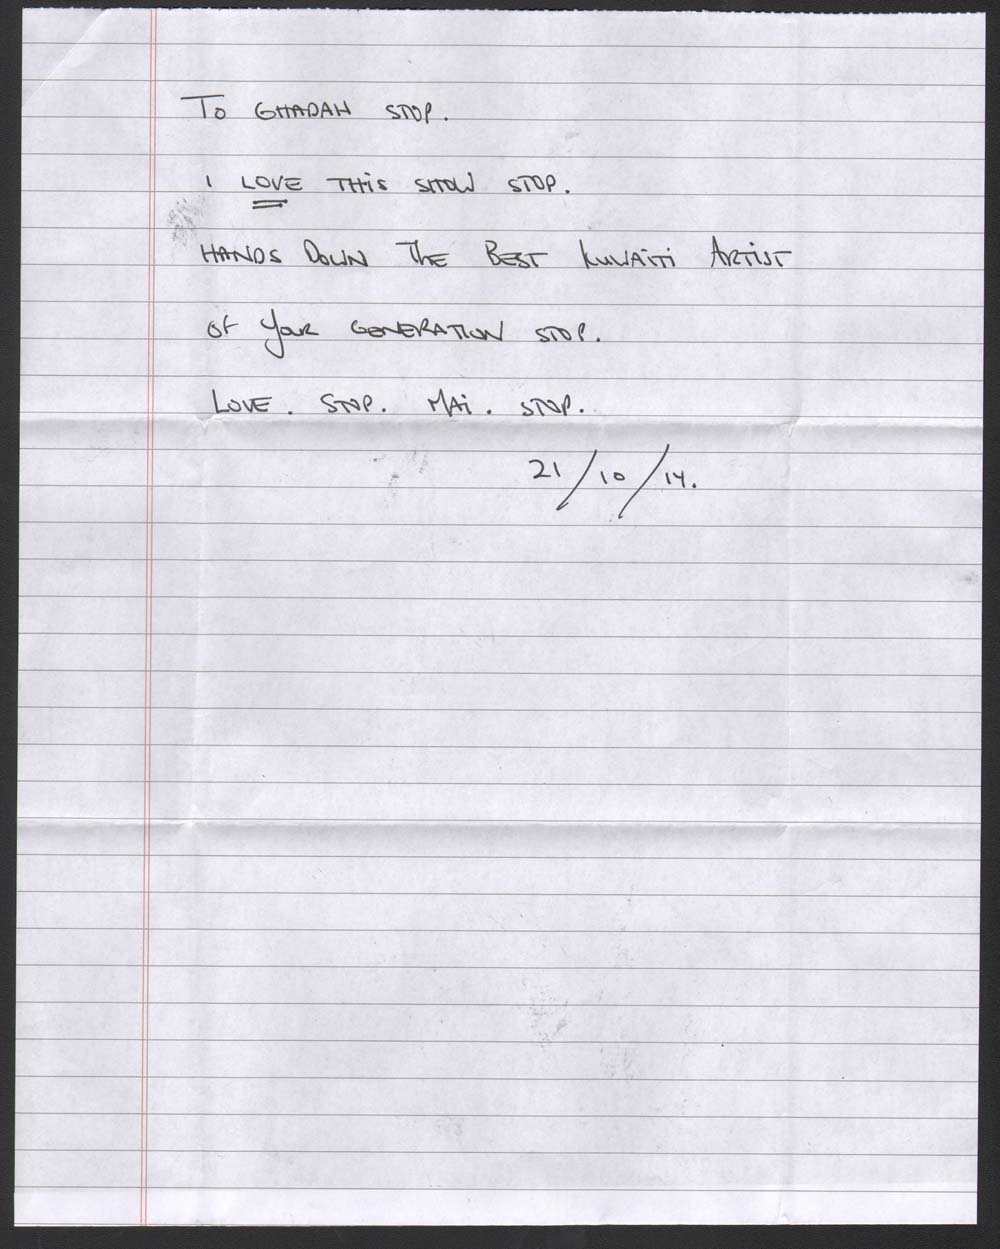 To GHADAH STOP.
I LOVE THiS SHOW STOP.
HANDS DOWN THE BEST KUWAiTi ARTiST
OF YOUR GENERATION STOP.
LOVE. STOP. MAi. STOP.
21/10/14.